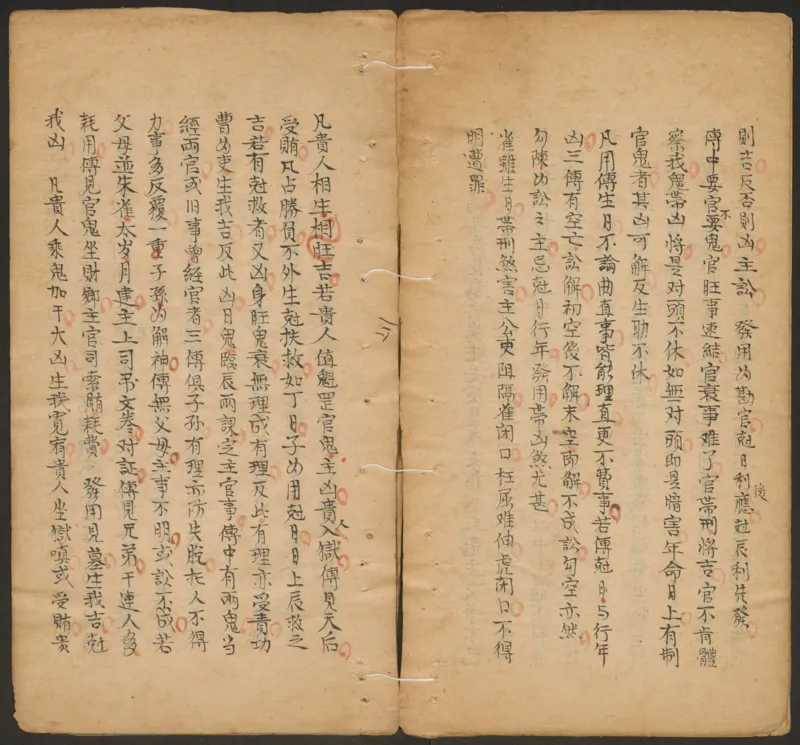 則吉反否則凶主訟 發用為勘官尅日利應後尅辰利先發
傳中要官不要鬼官旺事速結官衰事难了官帯刑將吉官不肯體
察我鬼帯凶將是对頭不休如無对頭即是暗害年命日上有制
官鬼者其凶可解反生助不休
凡用傳生日不論曲直事皆能理直更不費事若傳尅日与行年
凶三傳有空亡訟解初空後不解末空即解不成訟勾空亦然
勾陳為訟之主忌尅日行年發用帯凶煞尤甚
雀雖生日帯刑煞害主公吏阻隔雀闭口枉屈难伸虎闭口不得
明遭罪
凡貴人相生相旺吉若貴人值魁罡官鬼主凶貴人入獄傳見天后
受賄凡占勝負不外生尅扶救如丁日子為用尅日日上辰救之
吉若有尅救者又凶身旺鬼衰無理成有理反此有理亦受責功
曹為吏生我吉反此凶日鬼臨辰兩課定主官事傳中有兩鬼当
經两官或旧事曾經官者三傳俱子孫有理亦防失脫託人不得
力事多反覆一重子孫為解神傳無父母主事不明或訟不成若
父母並朱雀太岁月建主上司吊文卷对証傳見兄弟干連人多
耗用傳見官鬼坐財鄉主官司索賄耗費 發用見墓生我吉尅
我凶 凡貴人乘鬼加干大凶生我寬宥貴人坐獄嗔或受賄貴